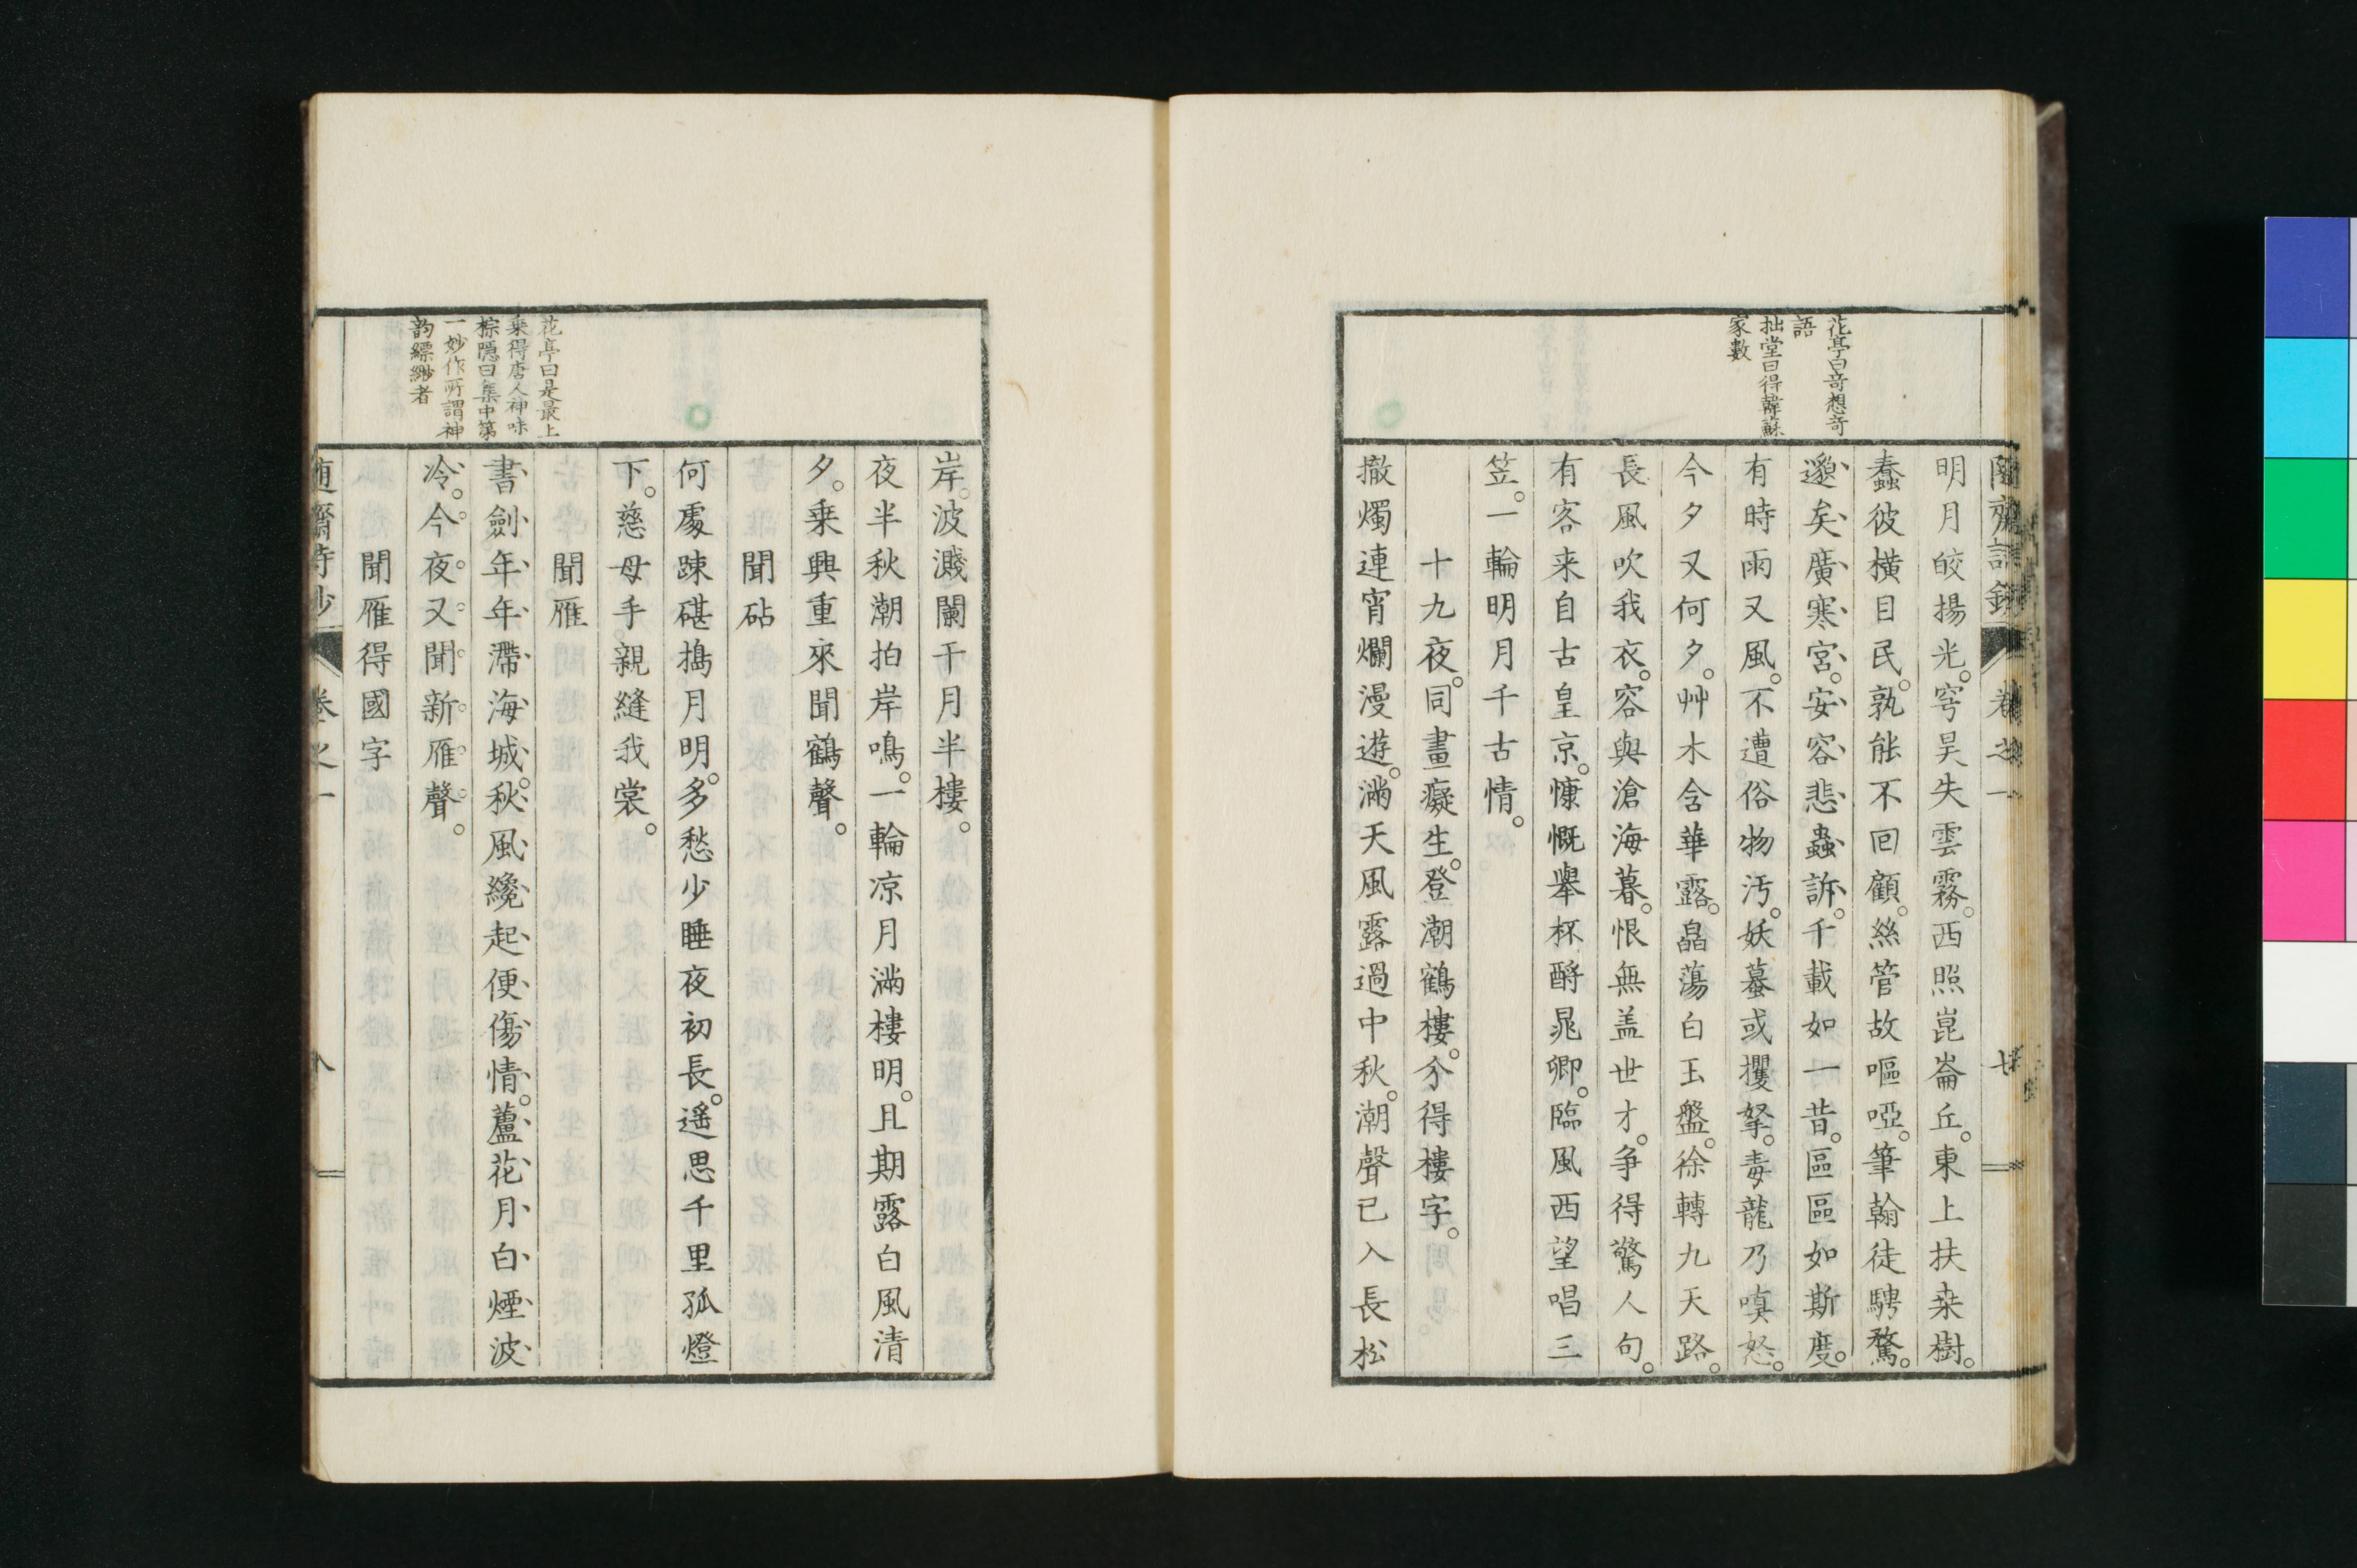 花亭曰奇想奇
語
拙堂曰得韓蘇
家數
明月皎揚光。穹昊失雲霧。西照崑崙丘。東上扶桒樹。
蠢彼橫目民。孰能不回顧。絲管故嘔啞。筆翰徒騁騖。
邈矣廣寒宮。安容悲蟲訴。千載如一昔。區區如斯度。
有時雨又風。不遭俗物汚。妖蟇或攫拏。毒龍乃嗔怒。
今夕又何夕。艸木含華露。皛蕩白玉盤。徐轉九天路。
長風吹我衣。容與滄海暮。恨無盖世才。争得驚人句。
有客来自古皇京。慷慨舉杯酹晁卿。臨風西望唱三
笠。一輪明月千古情。
十九夜。同畫癡生。登潮鶴樓。分得樓字。
撤燭連宵爛漫遊。滿天風露過中秋。潮聲已入長松
花亭曰是最上
乗得唐人神味
棕隱曰集中第
一妙作所謂神
韵縹緲者
岸。波濺闌干月半樓。
夜半秋潮拍岸鳴。一輪凉月滿樓明。且期露白風清
夕。乗興重來聞鶴聲。
聞砧
何處踈碪搗月明。多愁少睡夜初長。遥思千里孤燈
下。慈母手親縫我裳。
聞雁
書劍年年滯海城。秋風纔起便傷情。蘆花月白煙波
冷。今夜又聞新雁聲。
聞雁得國字
卷之一
八